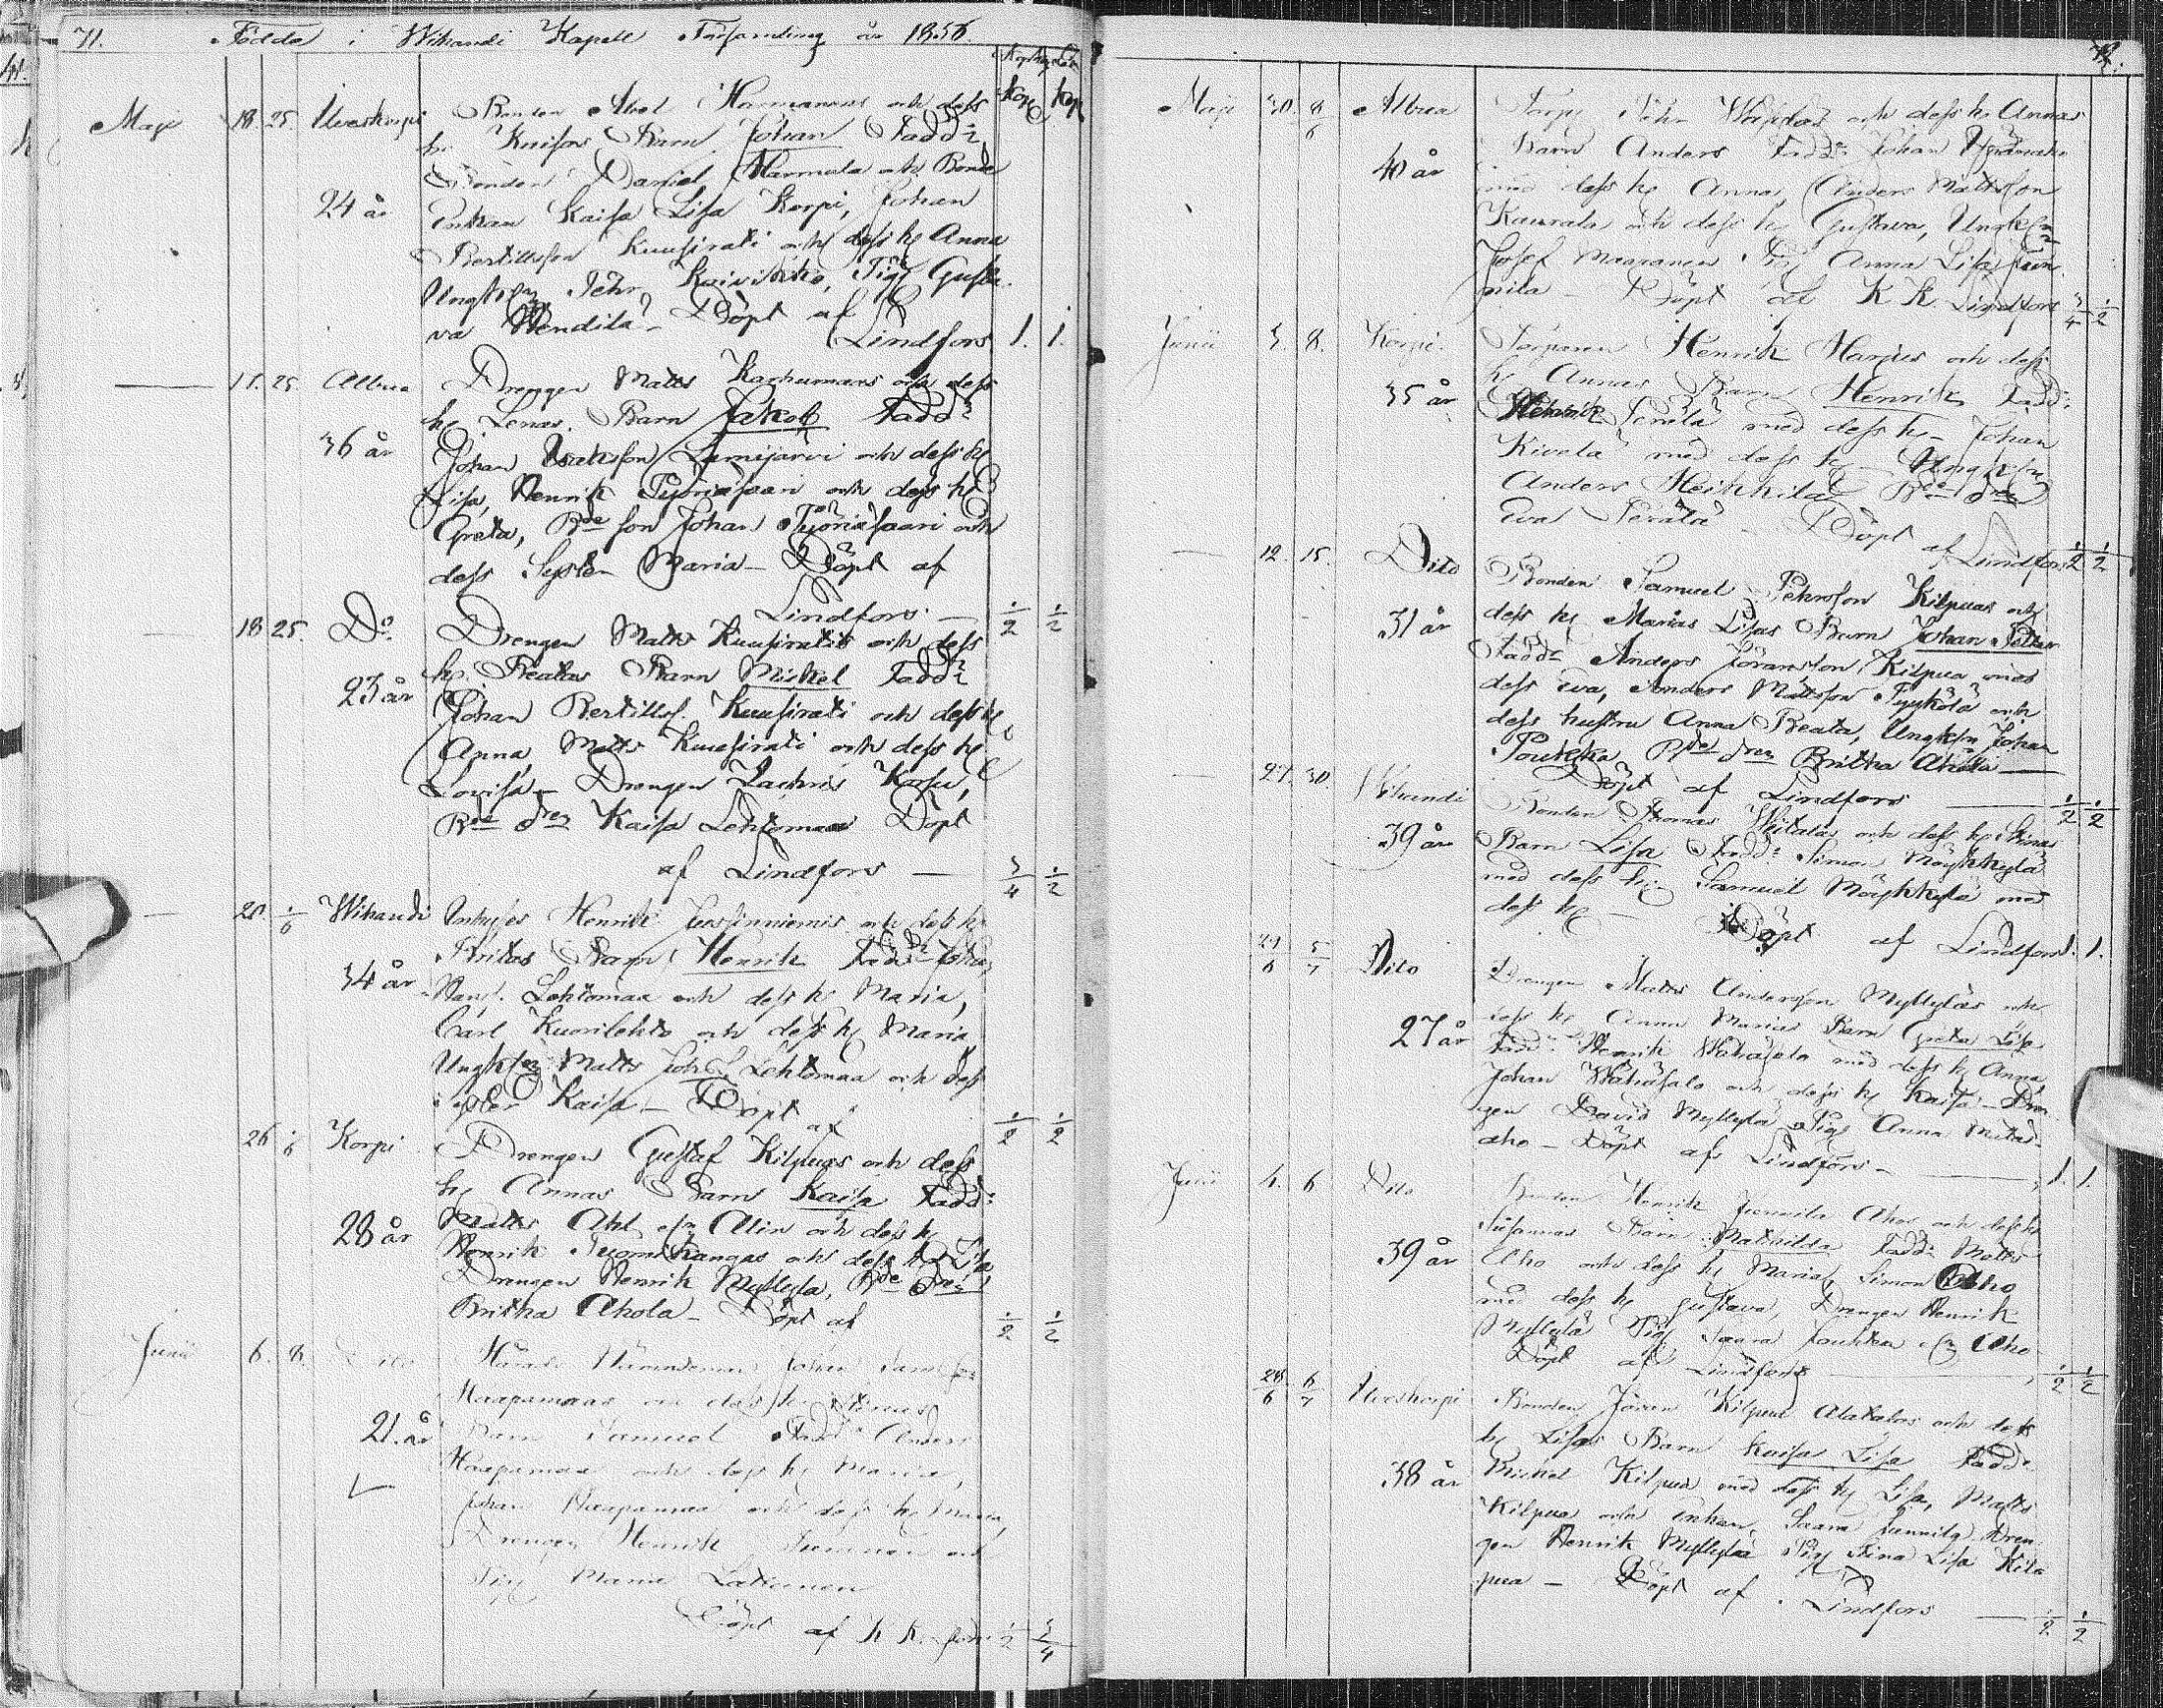 71. Födde i Wihandi Kapell Församling år 1856.
Kop Kop
Maji 18. 25. Ilveskorpi Bonden Abel Harmanens och dess
h: Kaisas Barn Johan Fadd:
Bonden Daniel Harmala och Bonde
24 år Enkan Kaisa Lisa Korpi, Johan
Bertillsson Kuusirati och dess h: Anna
Ungk: Pehr Koivikko, Pig: Gusta-
va Wendilä - Döpt af
Lindfors 1. 1.
18. 25. Albua Drengen Matts Karhumaas och dess
h: Lenas Barn Jakob Fadd:
36 år Johan Isaksson Lumijärvi och dess h:
Lisa, Henrik Pyöriäsaari och dess h:
Greta, Bde son Johan Pyöriäsaari och
dess Syster Maria - Döpt af
Lindfors - 1/2 1/2
18 25. Do Drengen Matts Kuusiratis och dess
h: Beatas Barn Mickel Fadd:
23 år Johan Bertillss. Kuusirati och dess h:
Anna, Matts Kuusirati och dess h:
Lovisa - Drengen Zachris Korsu,
Bde dr Kaisa Lehtomaa Döpt
af Lindfors - 3/4 1/2
28. 1/6 Wihandi Inhyses Henrik och dess h:
Britas Barn Henrik Fadd: Johan
34 år Hans. Lehtomaa och dess h: Maria,
Carl Kuonilehto och dess h: Maria
Ungk: Matts Joh: Lehtomaa och dess
syster Kaisa - Döpt af 1/2 1/2
26 1/6 Korpi Drengen Gustaf Kilpuas och dess
h: Annas Barn Kaisa Fadd:
28 år Matts Ahl Alin och dess h:
Henrik Tuomikangas och dess h: Lisa
Drengen Henrik Myllylä, Bde Dr
Britha Ahola - Döpt af 1/2 1/2
Junii 6. 8. Dito Härads Nämndeman Johan Samsson
Haapamaas och dess h: Stinas
21. år Barn Samuel Fadd: Anders
Haapamaa och dess h: Maria,
Johan Haapamaa och dess h: Maria,
Drengen Henrik och
Pig Maria Laitinen
Döpt af K K. 1/2 3/4
72.
Maji 30. 8/6 Albua Torp: Pehr och dess h: Annas
Barn Anders Fadd: Johan
40 år med dess h: Anna, Anders Mattsson
Kaurala och dess h: Gustava, Ungk:
Josef Maaranen Pig Anna Lisa Jun-
nila - Döpt af K K. Lindfors 3/4 1/2
Junii 3. 8. Korpi Torparen Henrik Harjus och dess
h: Annas Barn Henrik Fadd:
35 år Henrik Perälä med dess h: Johan
Kivelä med dess h: Ungk:
Anders Heikkilä Bde dr
Eva Perälä - Döpt
af Lindfors 1/2 1/2
12. 15. Dito Bonden Samuel Pehrsson Kilpuas och
31 år dess h: Marias Lisas Barn Johan Petter
Fadd: Anders Göransson Kilpua med
dess Eva, Anders Mattsson Pyykölä och
dess hustru Anna Beata, Ungk: Johan
Poukka Bde dr Britha Ahola -
27. 30. Wihandi Döpt af Lindfors - 1/2 1/2
Bonden Thomas Wiitalas och dess h: Stinas
39 år Barn Lisa Fadd: Simon Möykkylä
med dess h: Samuel Möykkylä med
dess h: - Döpt af Lindfors 1. 1.
29/6 5/7 Dito Drengen Matts Andersson Myllyläs och
dess h: Anna Marias Barn Greta Lisa
27 år Fadd: Henrik Wähäsalo med dess h: Anna
Johan Wähäsalo och dess h: Kaisa - Dren-
gen David Myllylä Pig Anna
aho - Döpt af Lindfors - 1. 1.
Julii 4. 6 Dito Bonden Henrik Junnila Ahos och dess h:
Susannas Barn Mathilda Fadd: Matts
39 år Aho och dess h: Maria, Simon Aho
med dess h: Gustava, Drengen Henrik
Myllylä Pig Saara Aho
Döpt af Lindfors 1/2 1/2
28/6 6/7 Ilveskorpi Bonden Jöran Kilpua Alatalos och dess
h: Lisas Barn Kaisa Lisa Fadd:
38 år Mickel Kilpua med dess h: Lisa, Matts
Kilpua och Enkan Saara Junnila, Dren-
gen Henrik Myllylä Pig Stina Lisa Kil-
pua - Döpt af Lindfors - 1/2 1/2